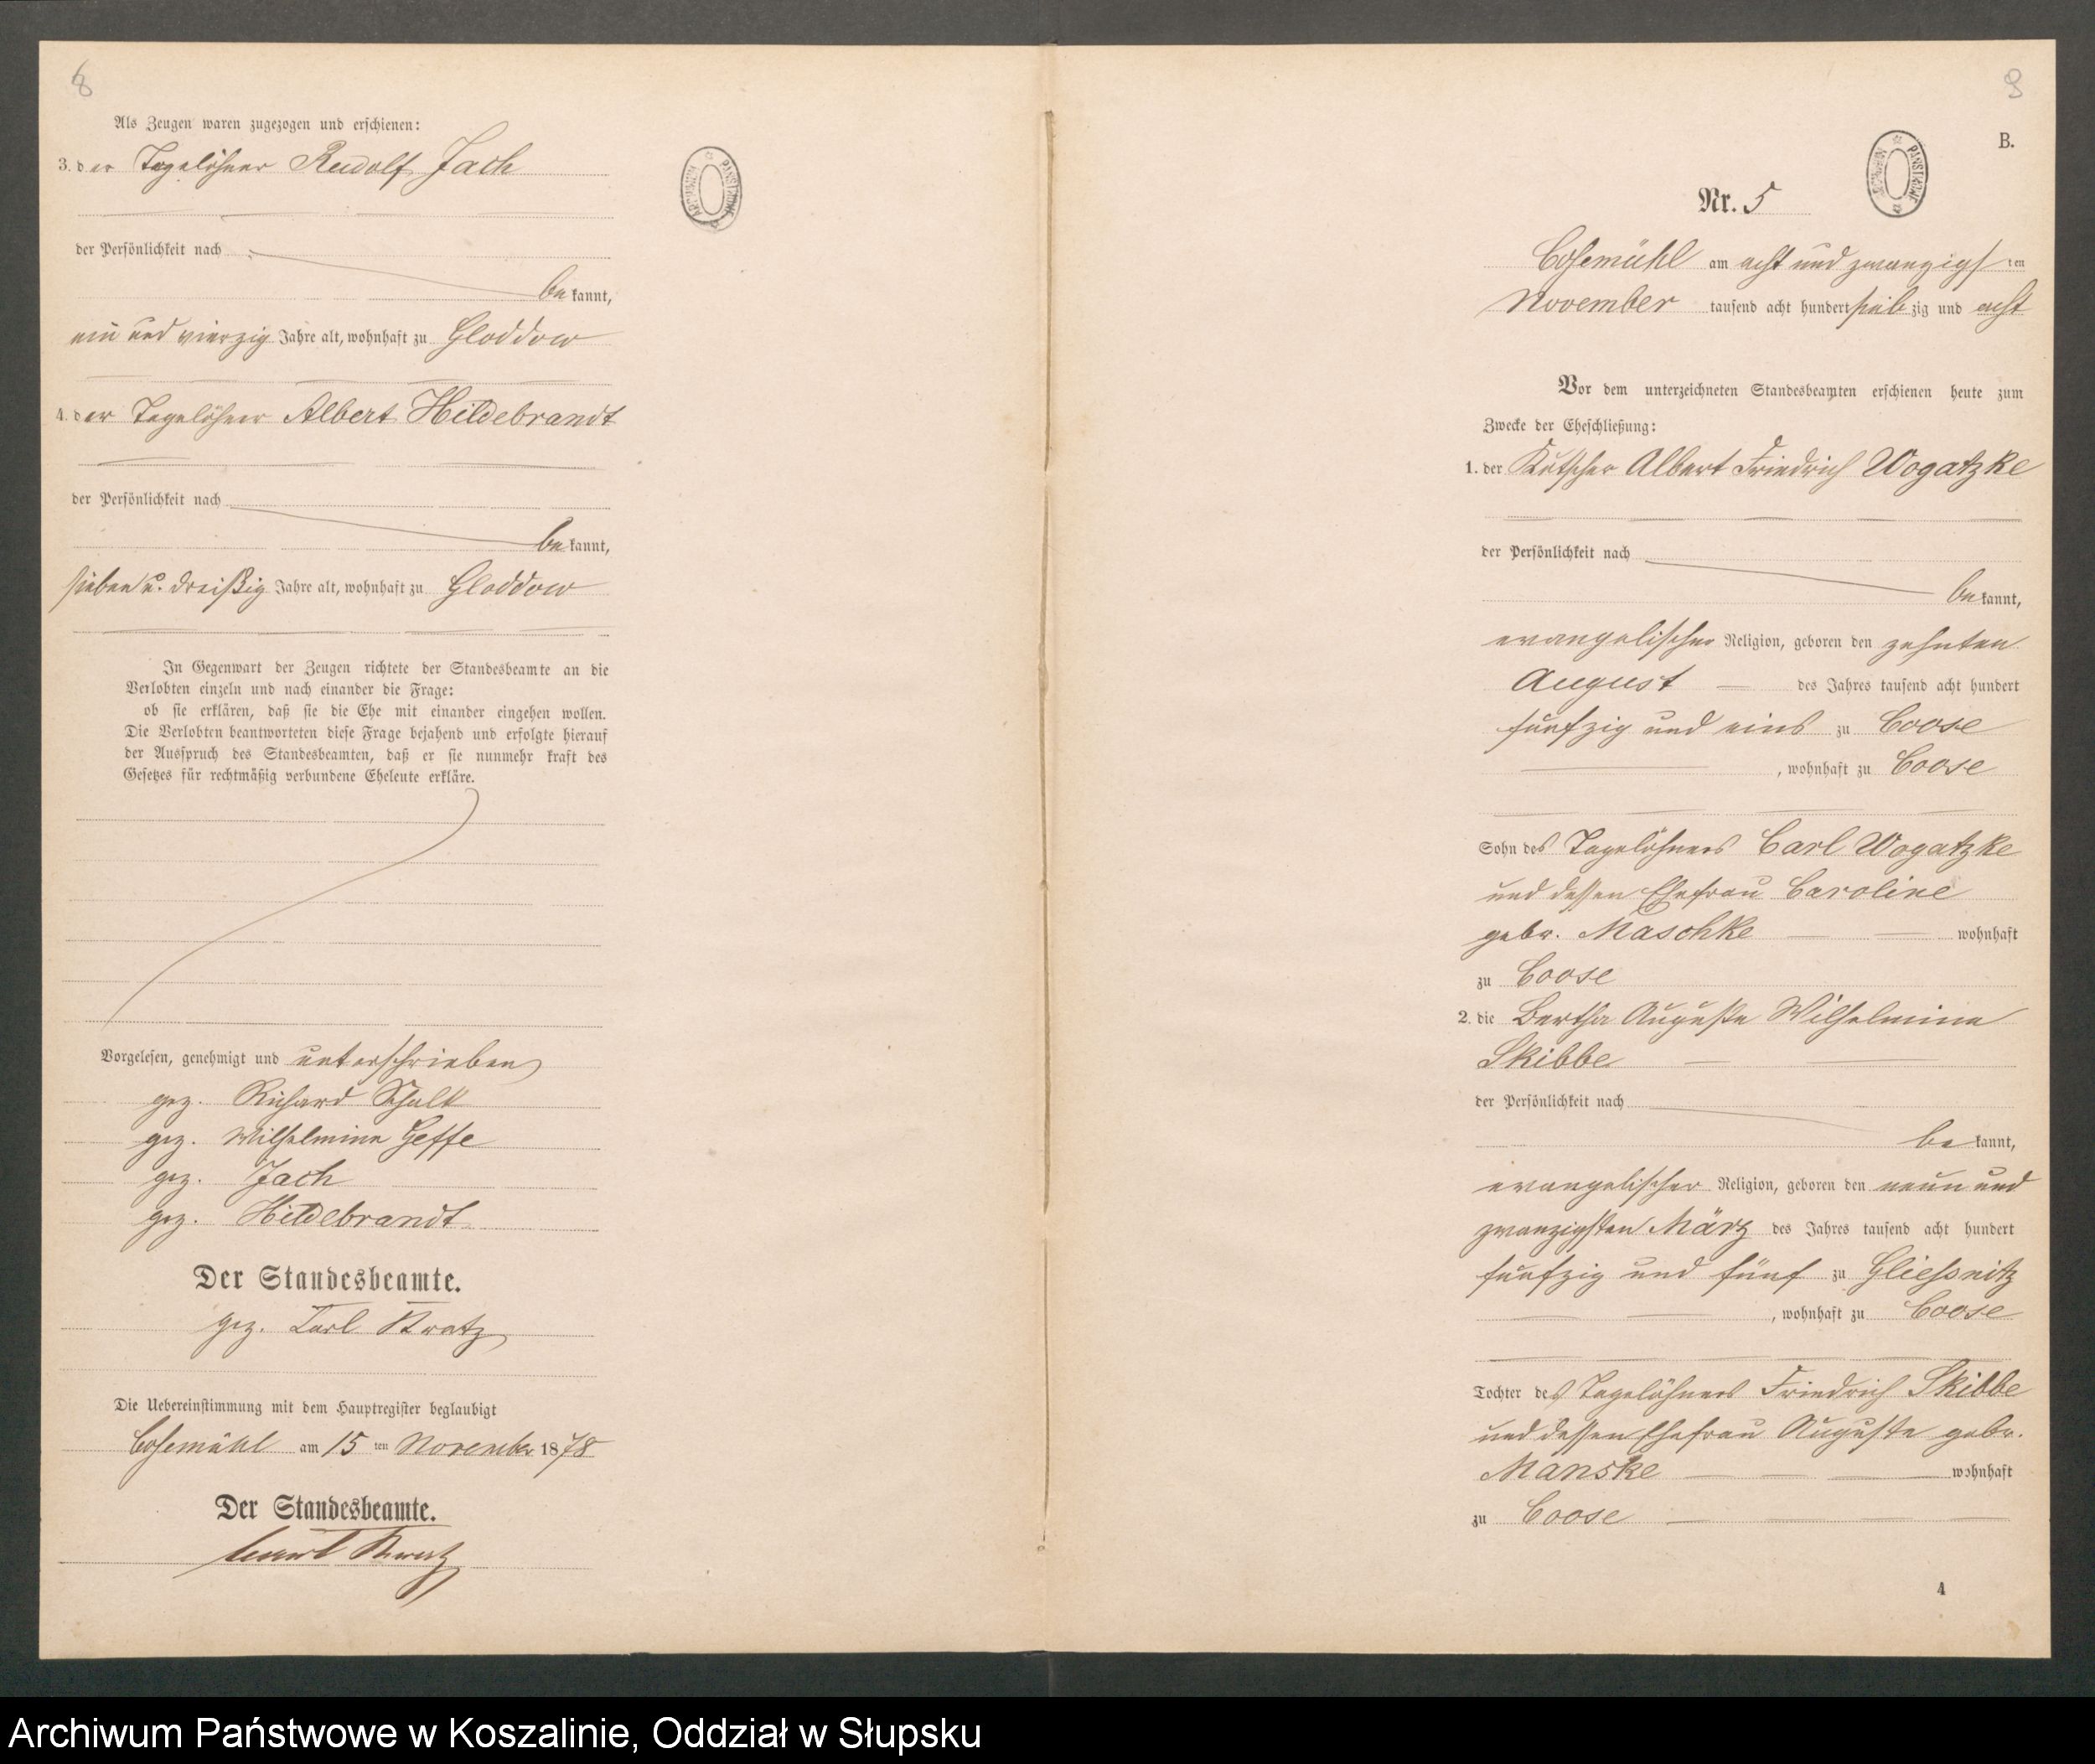 8
Als Zeugen waren zugezogen und erschienen:
3. der Tagelöhner Rudolf Jach
der Persönlichkeit nach
bekannt,
ein und vierzig Jahre alt, wohnhaft zu Gloddow
4. der Tagelöhner Albert Hildebrandt
der Persönlichkeit nach
bekannt,
sieben u. dreißig Jahre alt, wohnhaft zu Gloddow
In Gegenwart der Zeugen richtete der Standesbeamte an die
Verlobten einzeln und nach einander die Frage:
ob sie erklären, daß sie die Ehe mit einander eingehen wollen.
Die Verlobten beantworteten diese Frage bejahend und erfolgte hierauf
der Ausspruch des Standesbeamten, daß er sie nunmehr kraft des
Gesetzes für rechtmäßig verbundene Eheleute erkläre.
Vorgelesen, genehmigt und unterschrieben
gez. Richard
gez. Wilhelmine
gez. Jach
gez. Hildebrandt
Der Standesbeamte.
gez. Carl Kratz
Die Uebereinstimmung mit dem Hauptregister beglaubigt
Cosemühl am 15 ten November 1878
Der Standesbeamte.
Carl Kratz
ARCHIWUM PAŃSTWOWE
9
B.
ARCHIWUM PAŃSTWOWE
Nr. 5
Cosemühl am acht und zwanzigsten
November tausend acht hundert siebzig und acht
Vor dem unterzeichneten Standesbeamten erschienen heute zum
Zwecke der Eheschließung:
1. der Kutscher Albert Friedrich Wogatzke
der Persönlichkeit nach
bekannt,
evangelischer Religion, geboren den zehnten
August des Jahres tausend acht hundert
fünfzig und eins zu Coose
, wohnhaft zu Coose
Sohn des Tagelöhners Carl Wogatzke
und dessen Ehefrau Caroline
gebr. Maschke wohnhaft
zu Coose
2. die Bertha Auguste Wilhelmine
Skibbe
der Persönlichkeit nach
bekannt,
evangelischer Religion, geboren den neun und
zwanzigsten März des Jahres tausend acht hundert
fünfzig und fünf zu Gliesnitz
, wohnhaft zu Coose
Tochter des Tagelöhners Friedrich Skibbe
und dessen Ehefrau Auguste gebr.
Manske wohnhaft
zu Coose
4
Archiwum Państwowe w Koszalinie, Oddział w Słupsku